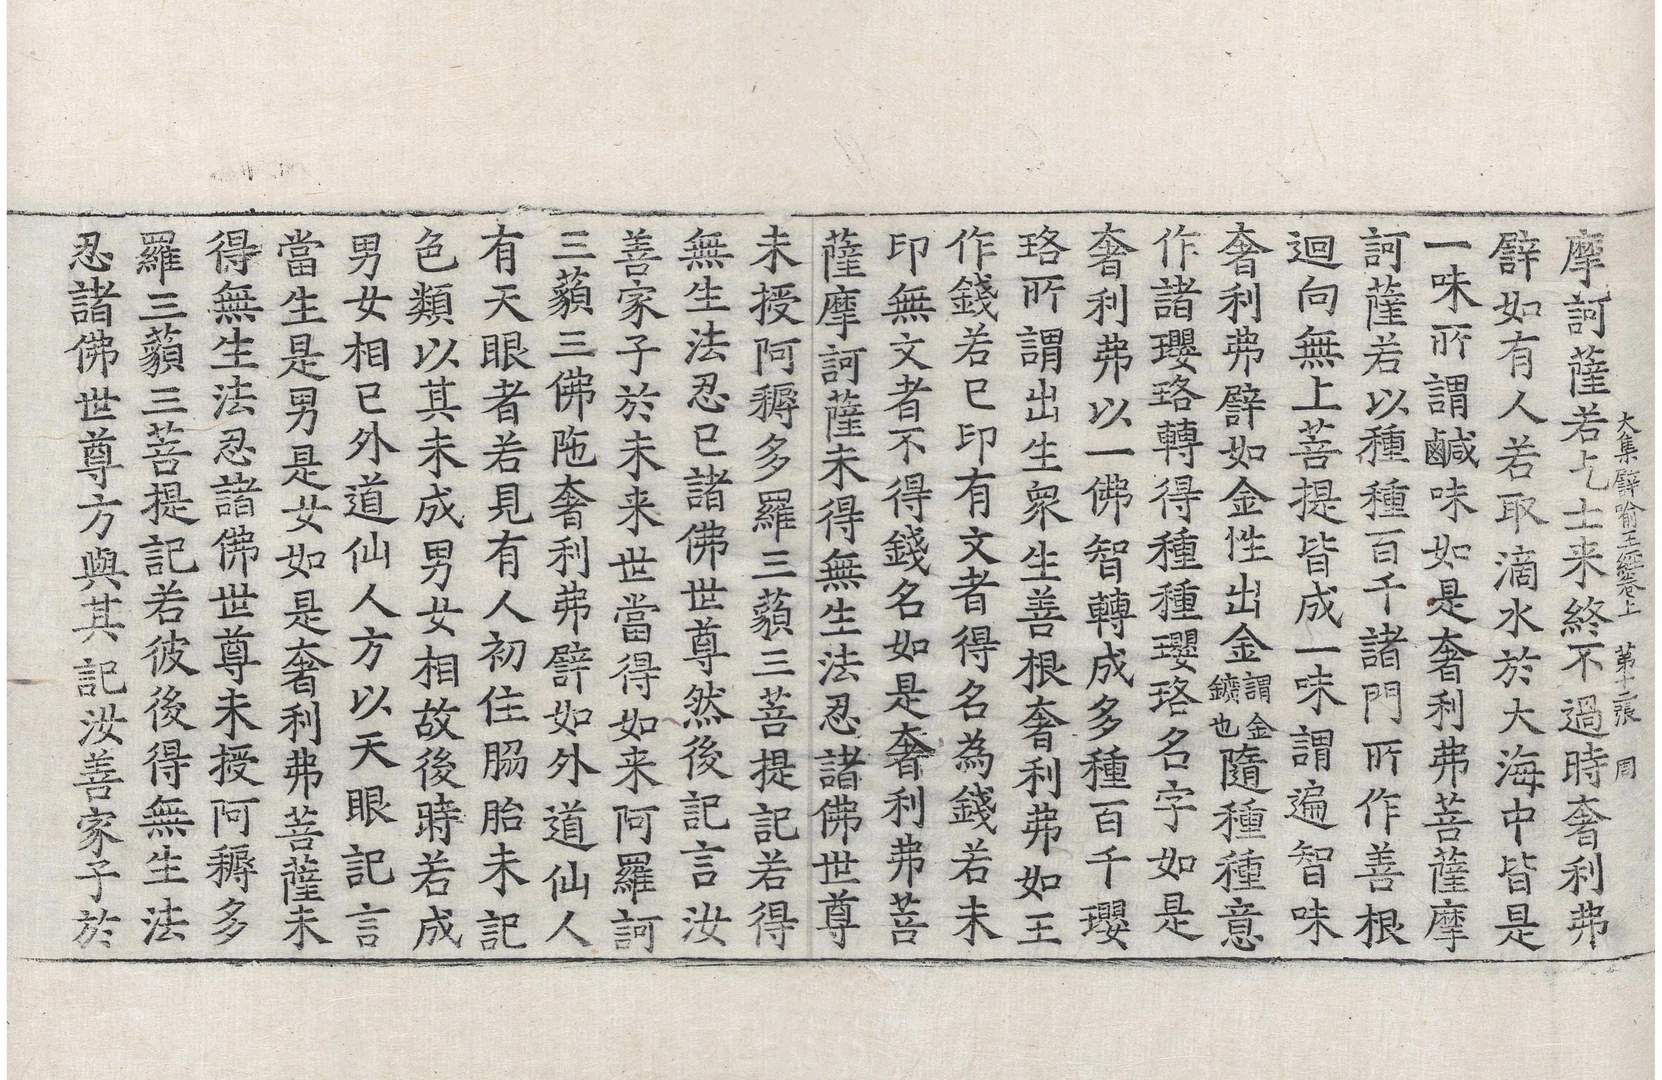 大集譬喻王經卷上　第十二張　周
摩訶薩若乞士来終不過時奢利弗
譬如有人若取滴水於大海中皆是
一味所謂鹹味如是奢利弗菩薩摩
訶薩若以種種百千諸門所作善根
迴向無上菩提皆成一味謂遍智味
奢利弗譬如金性出金謂金鑛也隨種種意
作諸瓔珞轉得種種瓔珞名字如是
奢利弗以一佛智轉成多種百千瓔
珞所謂出生衆生善根奢利弗如王
作錢若已印有文者得名為錢若未
印無文者不得錢名如是奢利弗菩
薩摩訶薩未得無生法忍諸佛世尊
未授阿耨多羅三藐三菩提記若得
無生法忍已諸佛世尊然後記言汝
善家子於未来世當得如来阿羅訶
三藐三佛陁奢利弗譬如外道仙人
有天眼者若見有人初住脇胎未記
色類以其未成男女相故後時若成
男女相已外道仙人方以天眼記言
當生是男是女如是奢利弗菩薩未
得無生法忍諸佛世尊未授阿耨多
羅三藐三菩提記若彼後得無生法
忍諸佛世尊方與其記汝善家子於